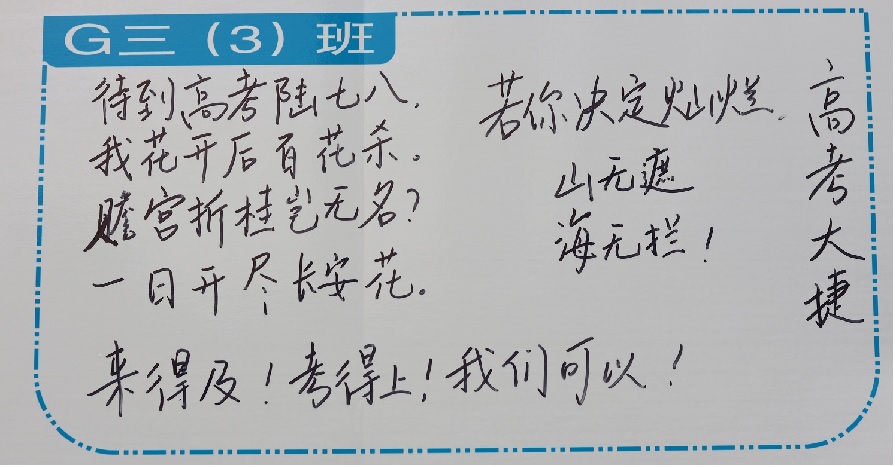 G三（3）班
待到高考陆七八，
我花开后百花杀。
赡宫折桂岂无名？
一日开尽长安花。
若你决定灿烂，
山无遮
海无拦！
高考大捷
来得及！考得上！我们可以！